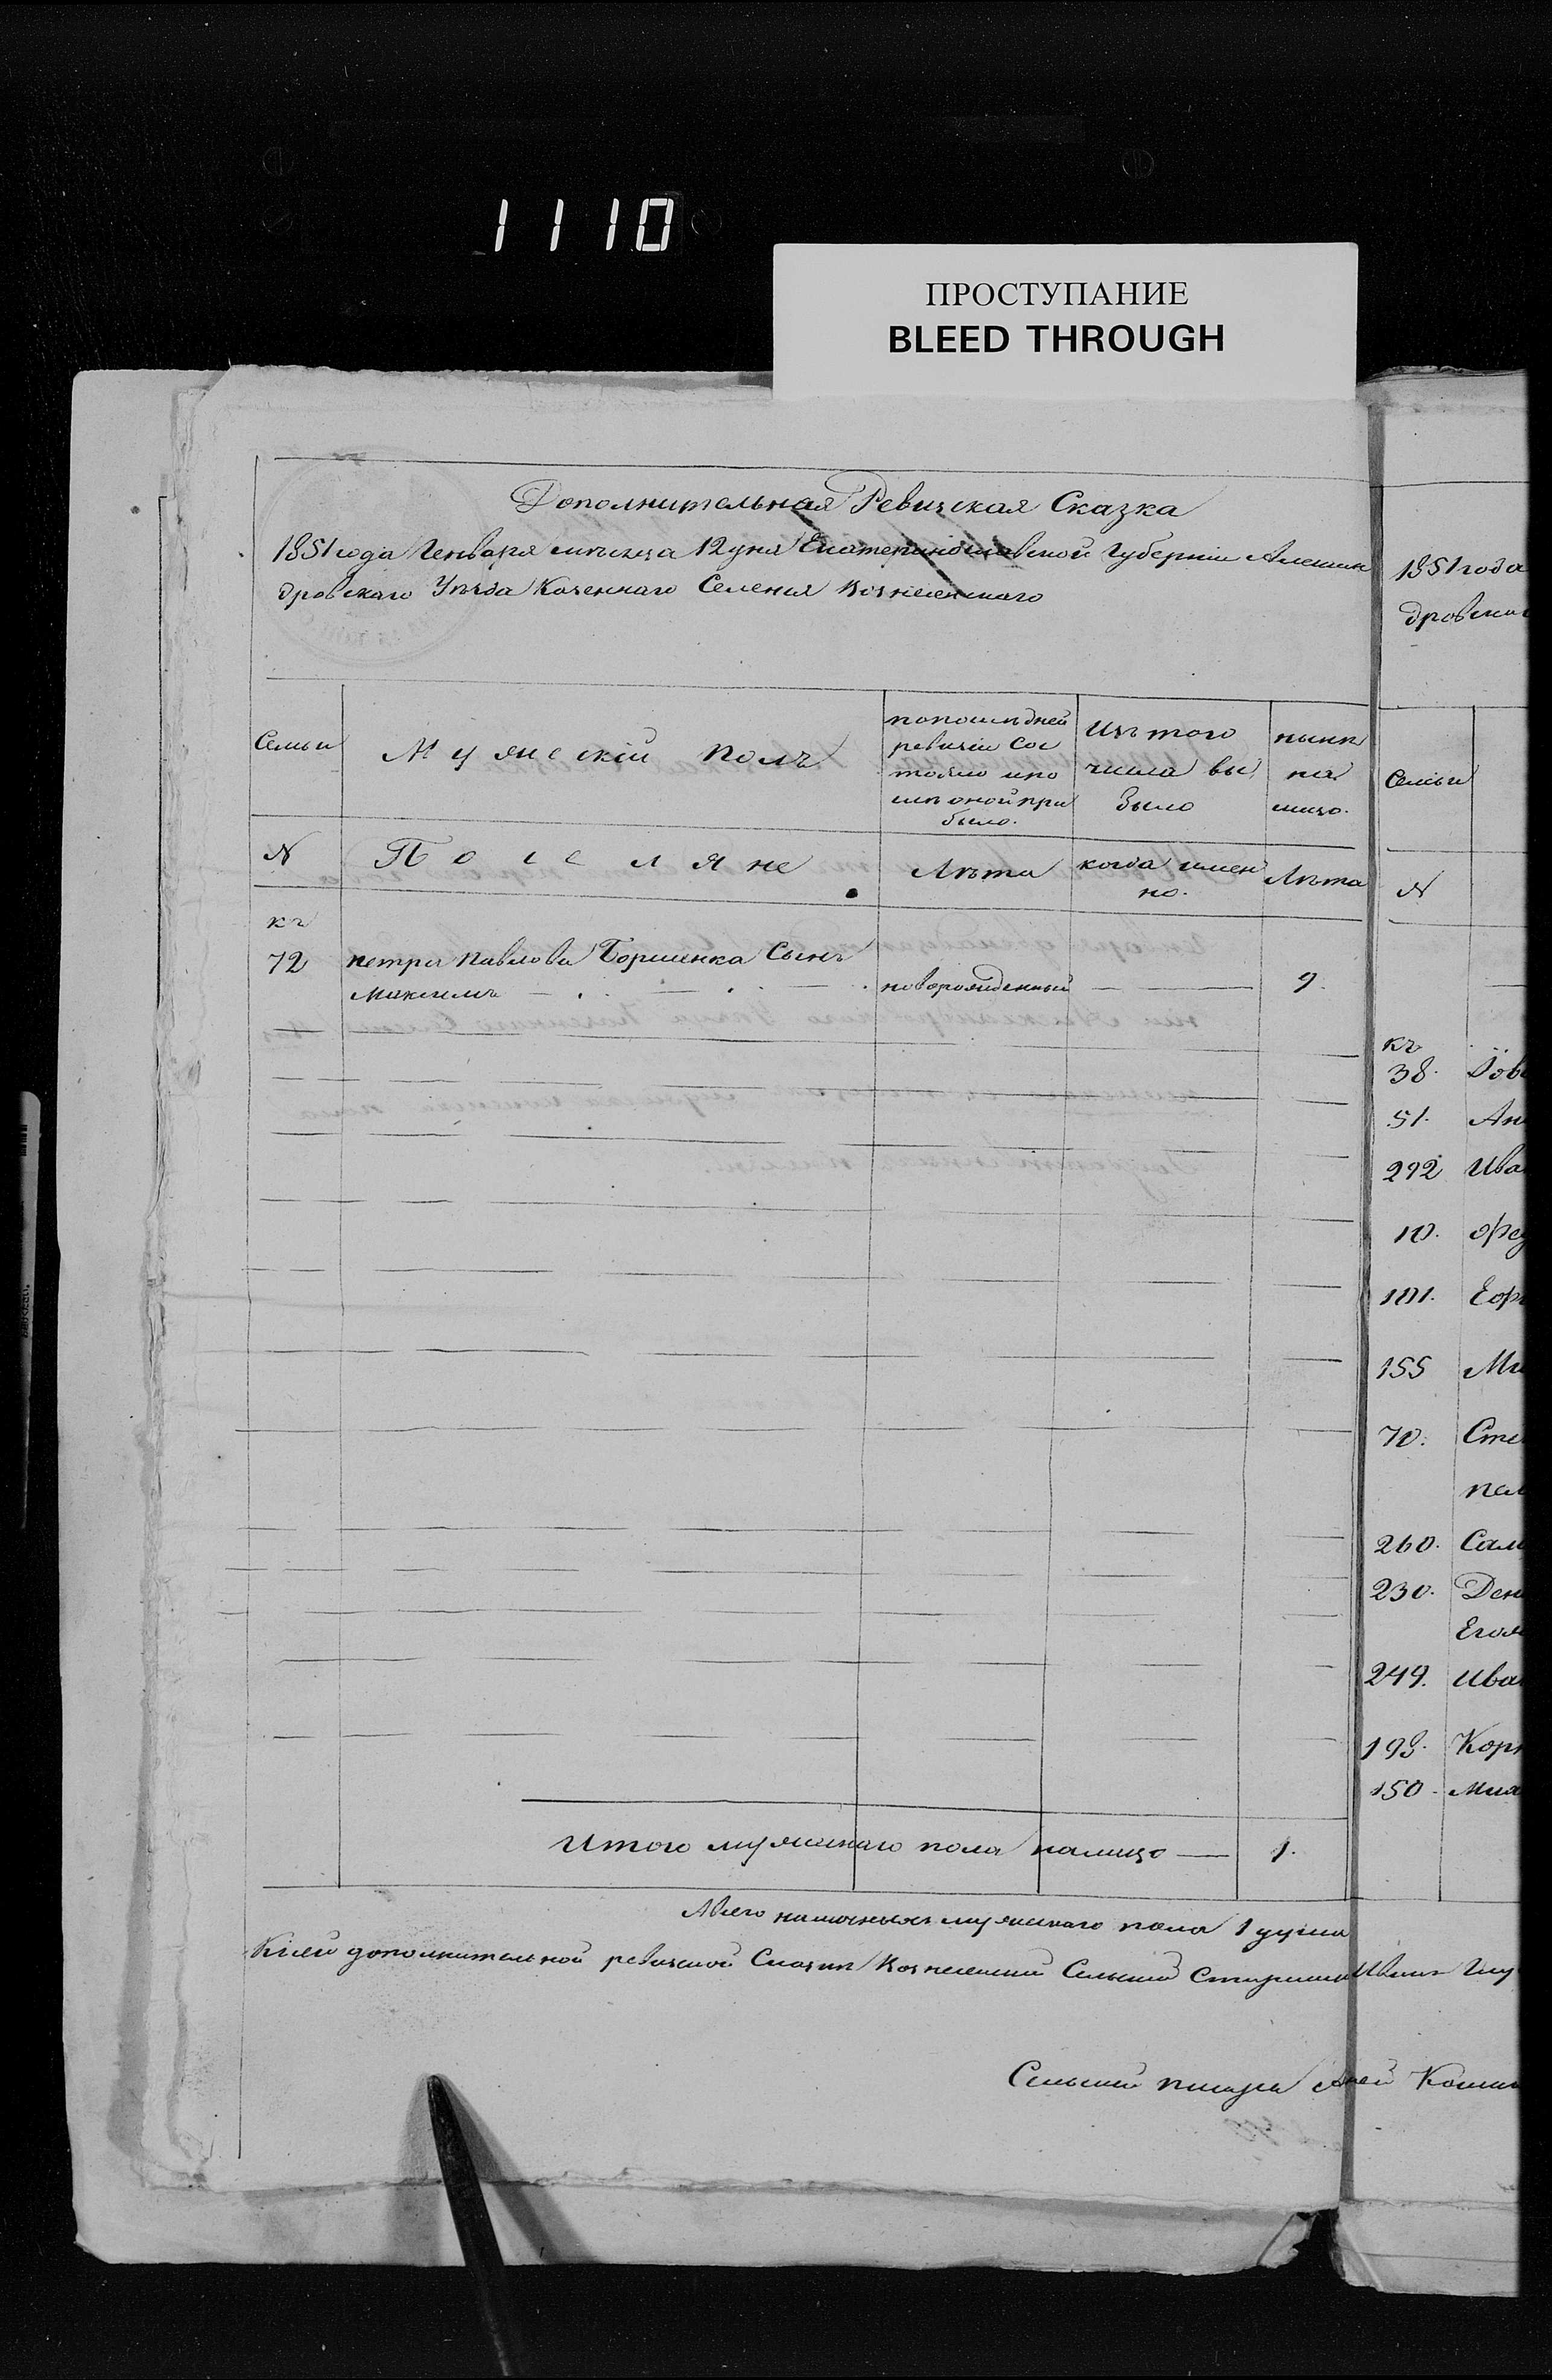 1110
ПРОСТУПАНИЕ
BLEED THROUGH
Дополнительная Ревизская Сказка
1851 года Генваря месяца 12 дня Екатеринославской Губернии Алексан
дровскаго Уезда Казеннаго Селения Вознесенскаго
Семьи
Мужескiй полъ
по последней ревизiи сос тояло и по сле оной при было.
Изъ того числа вы было
ныне на лицо.
N
Поселяне
Лета
когда имен но.
Лета
къ
72 петра Павлова Борщенка Сынъ
Максимъ новорожденный 9.
Итого мужескаго пола налицо 1.
Всего наличныхъ мужескаго пола 1 душа
К сей дополнительной ревизской Сказке Вознесенский Сельский Старшина Иванъ
Сельский писарь
1851 года
дровскаго
Семьи
N
къ
38.
51. Ан
292 Ива
10.
101.
155 Ми
70. Сте
260. Сам
230. Дени
Его
249. Ива
193. Кор
150